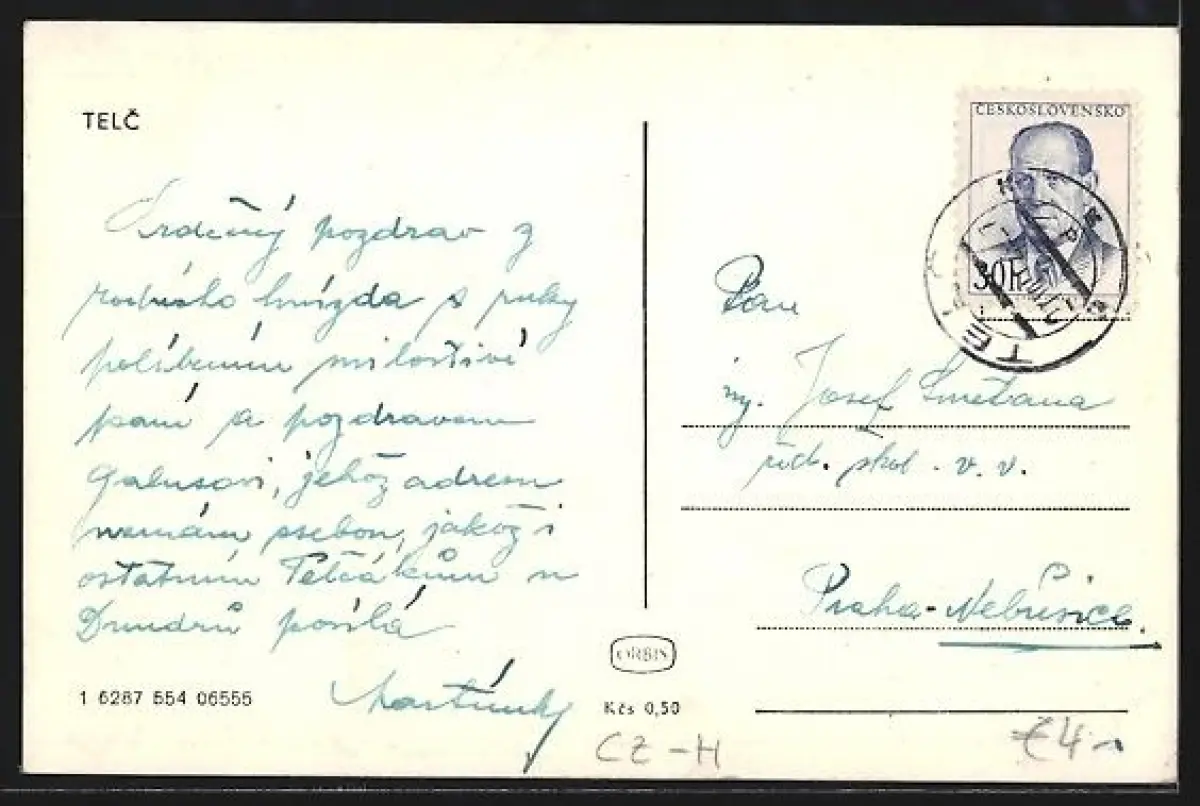 TELČ
Srdečný pozdrav z
rodného hnízda s ruky
políbením milostivé
paní a pozdravem
Galusovi, jehož adresu
nemám sebou, jakož i
ostatním Telčákům u
posílá
ČESKOSLOVENSKO
30 H
TE
Pan
ing. Josef Smetana
řed. škol. v. v.
Praha-Nebušice.
ORBIS
1 6287 554 06555
Kčs 0,50
CZ-H
€4